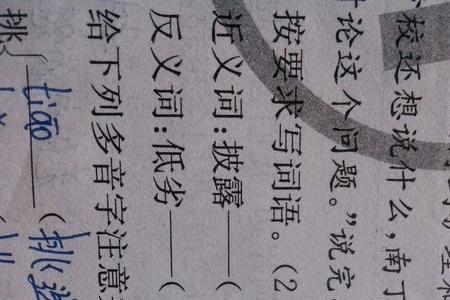 校还想说什么,南丁
讨论这个问题。”说完
按要求写词语。(2
近义词:披露(
反义词:低劣(
给下列多音字注意
挑 tiāo (挑选